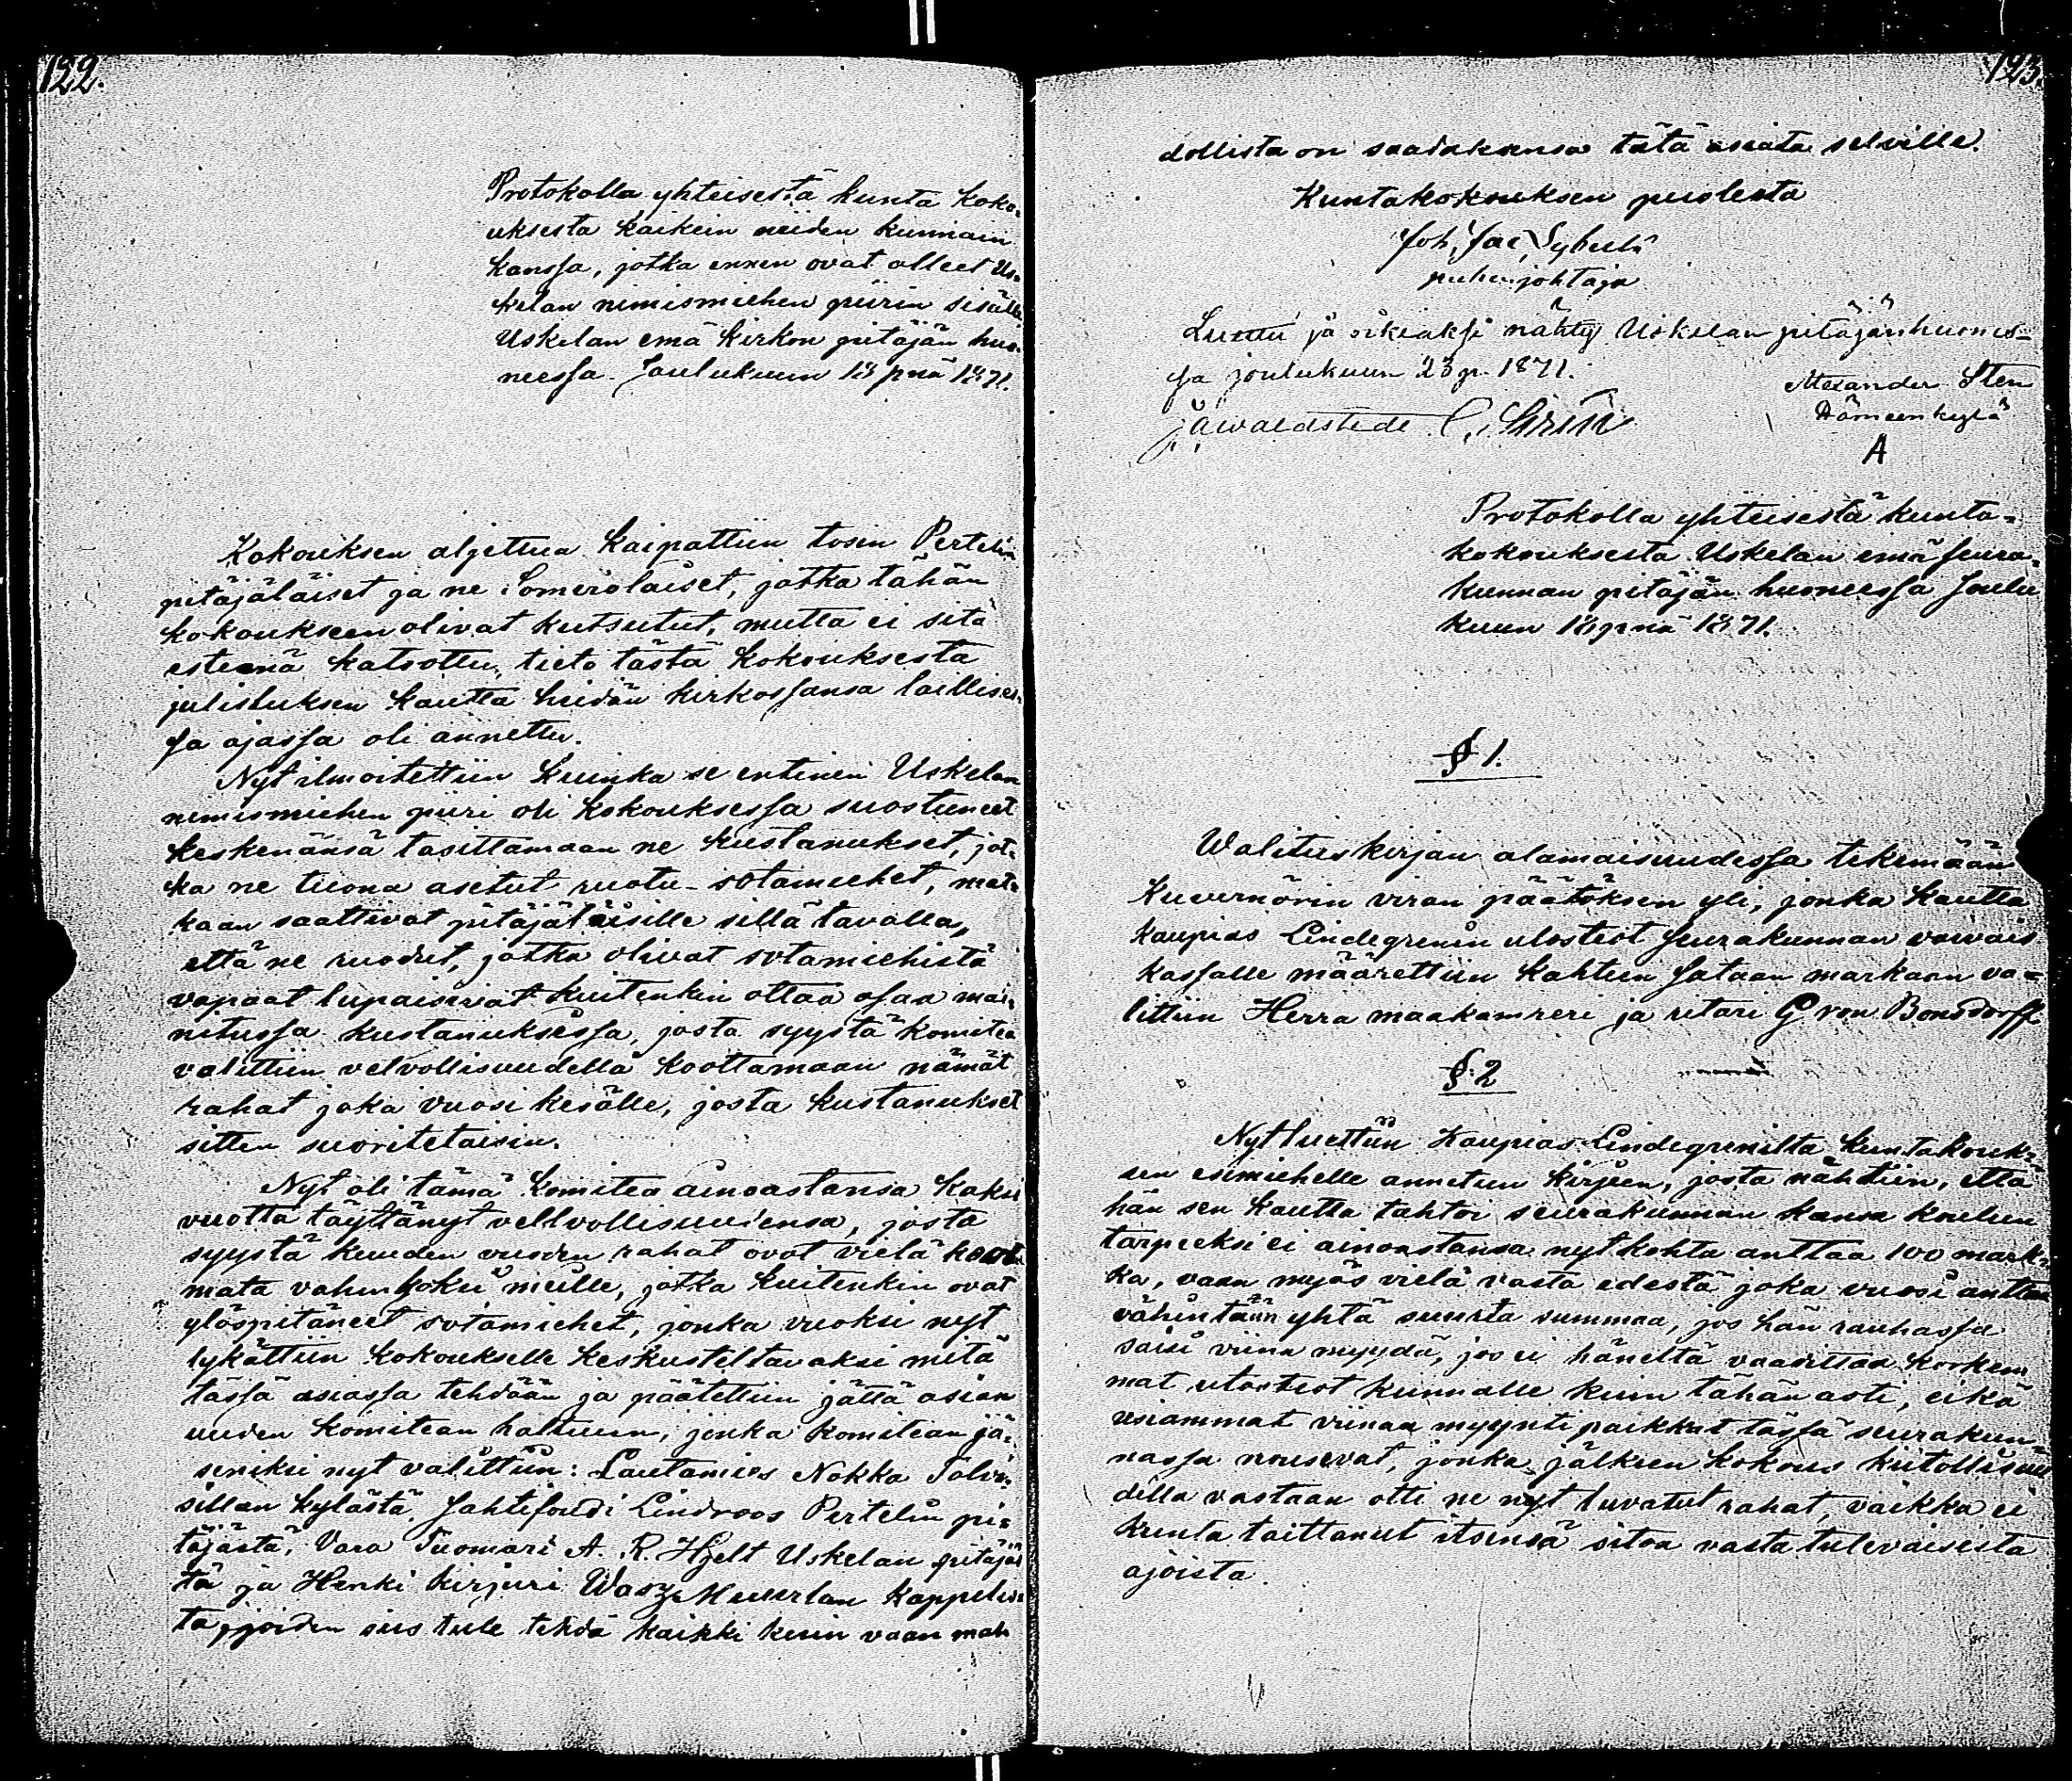 122.
Protokolla yhteisestä kunta koko=
uksesta kaikein niiden kunnain
kanssa, jotka ennen ovat olleet Us=
kelan nimismiehen piirin sisällä
Uskelan emä kirkon pitäjän huo=
neessa. Joulukuun 18 pnä 1871.
Kokouksen aljettua kaipattiin tosin Pertelin
pitäjäläiset ja ne Somerolaiset, jotka tähän
kokoukseen olivat kutsutut, mutta ei sitä
esteenä katsottu, tieto tästä kokouksesta
julistuksen kautta heidän kirkossansa laillises=
sa ajassa oli annettu.
Nyt ilmoitettiin kuinka se entinen Uskelan
nimismiehen piiri oli kokouksessa suostuneet
keskenänsä tasittamaan ne kustanukset, jot=
ka ne tuona asetut ruotu-sotamiehet, mat=
kaan saattivat pitäjäläisille sillä tavalla,
että ne ruodut, jotka olivat sotamiehistä
vapaat lupaisivat kuitenkin ottaa osaa mai=
nitussa kustanuksessa, josta syystä komitea
valittiin velvollisuudella koottamaan nämät
rahat joka vuosi kesälle, josta kustanukset
sitten suoritetaisin.
Nyt oli tämä komitea ainoastansa kaksi
vuotta täyttänyt vellvollisuudensa, josta
syystä kuuden vuoden rahat ovat vielä koot
mata vahingoksi meille, jotka kuitenkin ovat
ylöspitäneet sotamiehet, jonka vuoksi nyt
lykättiin kokoukselle keskusteltavaksi mitä
tässä asiassa tehdään ja päätettiin jättä asian
uuden komitean haltuun, jonka komitean jä=
seniksi nyt valittiin: Lautamies Nokka Talvi=
sillan kylästä, Jahtifoudi Lindroos Pertelin pi=
täjästä, Vara Tuomari A. R. Hjelt Uskelan pitäjäs
tä ja Henki kirjuri Wasz Muurlan kappelis=
ta, joiden siis tule tehdä kaikki kuin vaan mah
123.
dollista on saadaksensa tätä asiata selville.
Kuntakokouksen puolesta
Joh. Jac.
puhenjohtaja
Luettu ja oikiaksi nähty Uskelan pitäjänhuones=
sa joulukuun 23 p. 1871.
Alexander Sten
Hämeenkylä
A
Protokolla yhteisestä kunta=
kokouksesta Uskelan emä seura=
kunnan pitäjän huoneessa Joulu
kuun 18 pnä 1871.
§ 1.
Walituskirjan alamaisuudessa tekemään
Kuvernörin viran päätöksen yli, jonka kautta
kaupias Lindegrenin ulosteot seurakunnan vaivais
kassalle määrettiin kahteen sataan markaan va=
littiin Herra maakamreri ja ritari G von Bonsdorff
§ 2
Nyt luettiin Kaupias Lindegreniltä kuntakouk=
sen esimiehelle annetun kirjeen, josta nähtiin, että
hän sen kautta tahtoi seurakunnan kansa koulun
tarpeeksi ei ainoastansa nyt kohta anttaa 100 mark=
ka, vaan myös vielä vasta edestä joka vuosi anttaa
vähintään yhtä suurta summaa, jos hän rauhassa
saisi viina myydä, jos ei häneltä vaadittaa korkem
mat ulosteot kunnalle kuin tähän asti, eikä
usiammat viinaa myynti paikkat tässä seurakun=
nassa nousevat, jonka jälkeen kokous kiitollisuu
della vastaan otti ne nyt luvatut rahat, vaikka ei
kunta taittanut itsensä sitoa vasta tulevaisista
ajoista.